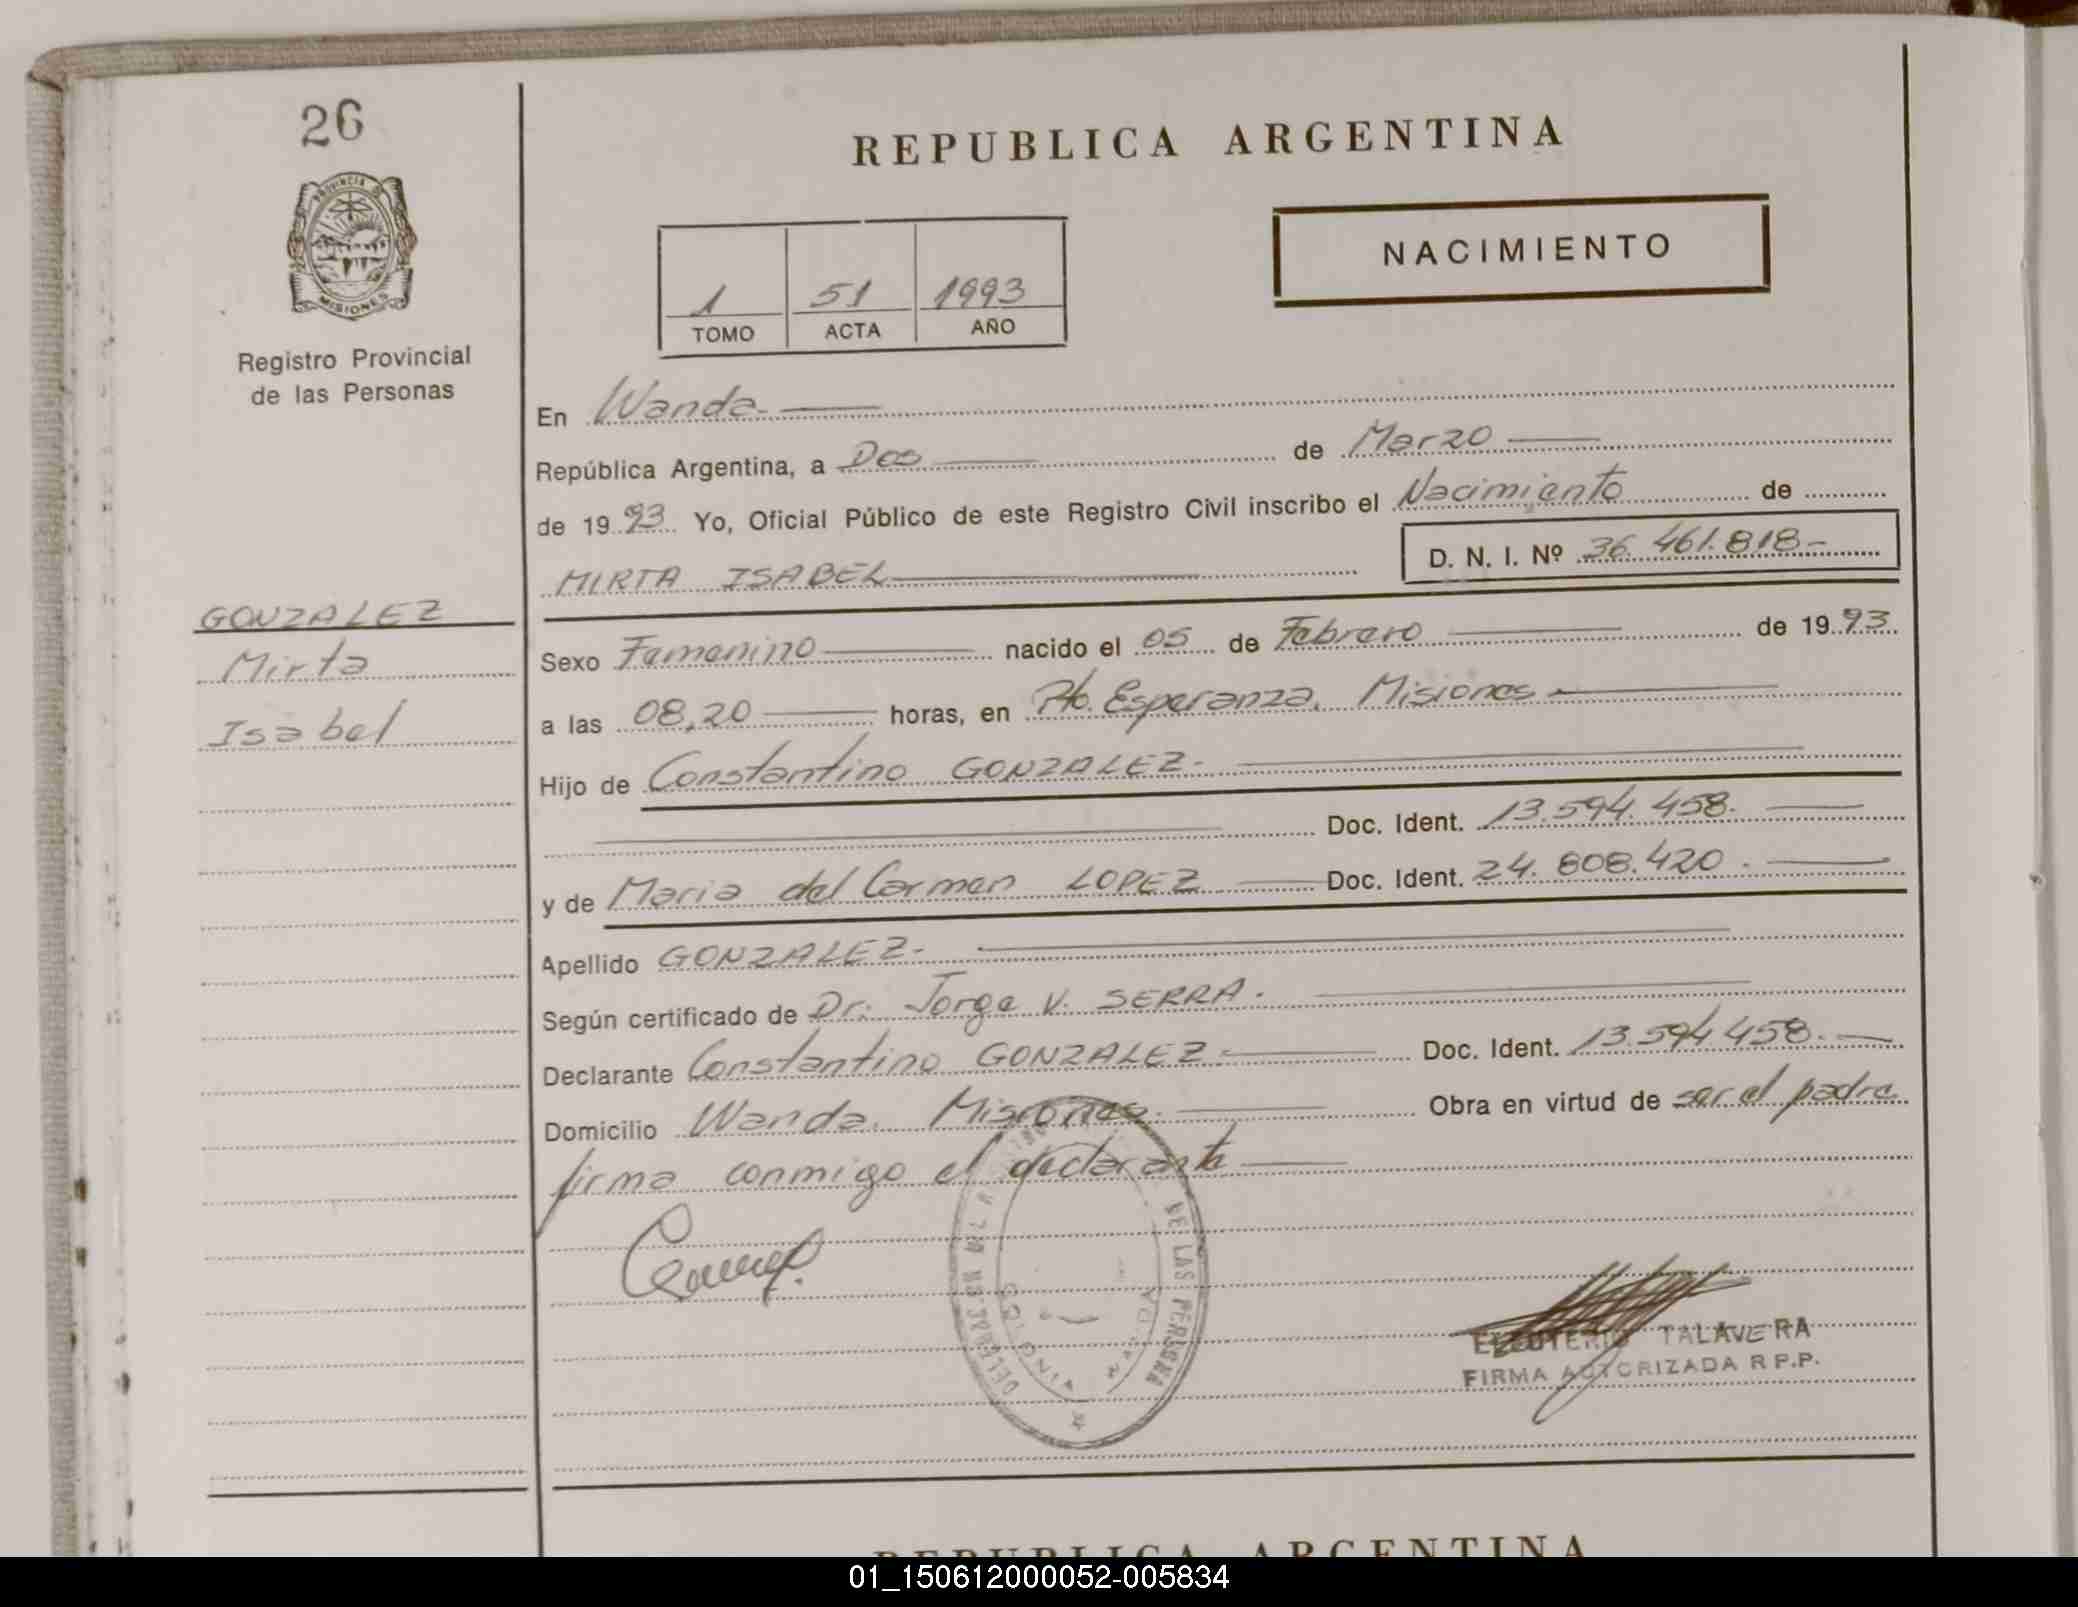 26
PROVINCIA DE
MISIONES
Registro Provincial
de las Personas
GONZALEZ
Mirta
Isabel
REPUBLICA ARGENTINA
NACIMIENTO
1 51 1993
TOMO ACTA AÑO
En Wanda.
República Argentina, a Dos de Marzo
de 1993 Yo, Oficial Público de este Registro Civil inscribo el Nacimiento de
MIRTA ISABEL D. N. I. Nº 36.461.818-
Sexo Femenino nacido el 05 de Febrero de 1993
a las 08,20 horas, en Pto. Esperanza. Misiones
Hijo de Constantino GONZALEZ.
Doc. Ident. 13.594.458.
y de Maria del Carmen LOPEZ Doc. Ident. 24.808.420.
Apellido GONZALEZ.
Según certificado de Dr. Jorge V. SERRA.
Declarante Constantino GONZALEZ. Doc. Ident. 13.594.458.
Domicilio Wanda. Misiones. Obra en virtud de ser el padre
firma conmigo el declarante
DE LAS PERSONA
WANDA
ELEUTERIO TALAVERA
FIRMA AUTORIZADA R P.P.
REPUBLICA ARGENTINA
01_150612000052-005834